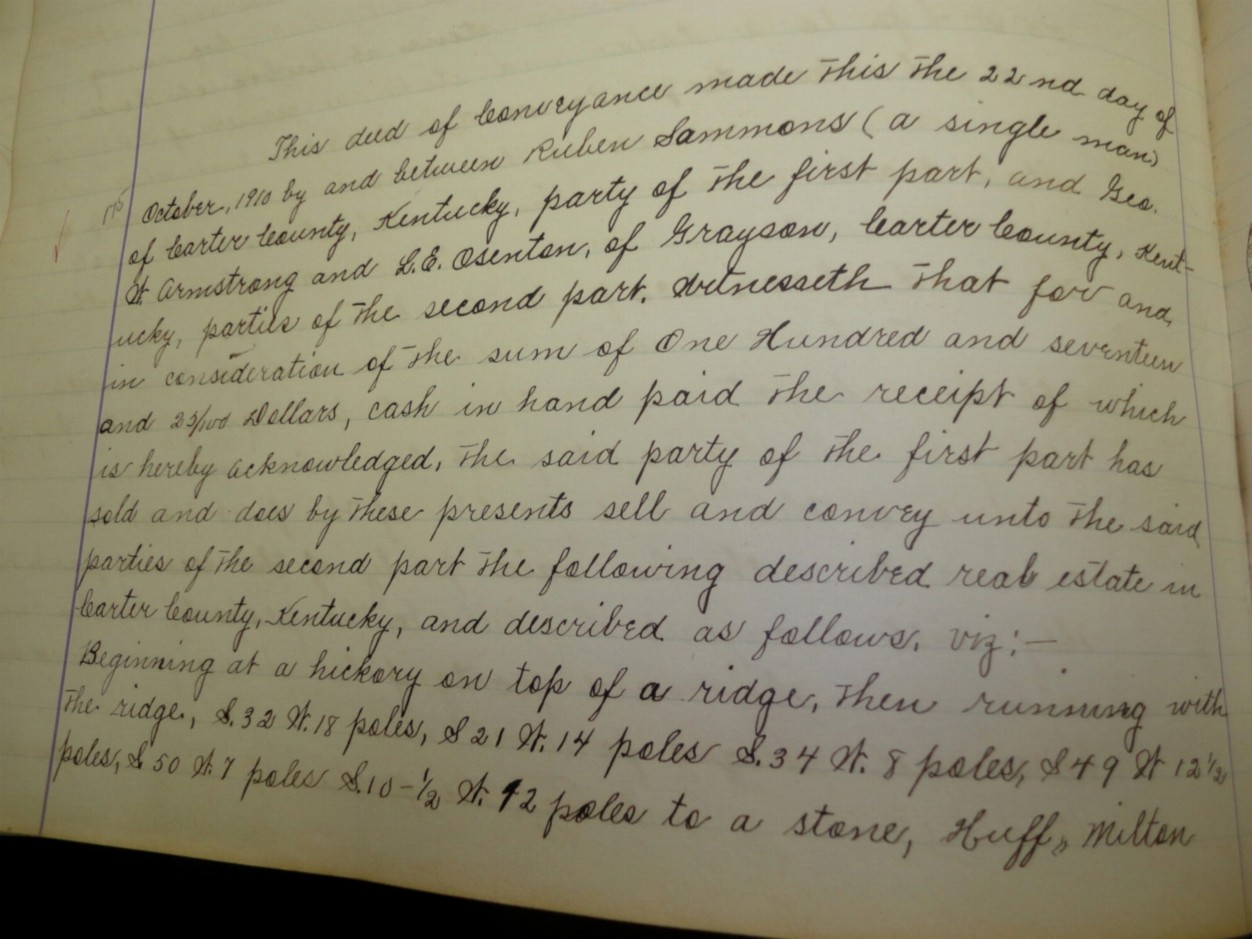 This deed of Conveyance made this the 22nd day of
October, 1910 by and between Reuben Sammons (a single man)
of Carter County, Kentucky, party of the first part, and Geo.
W. Armstrong and L.E. Osenton, of Grayson, Carter County, Kent-
ucky, parties of the second part. Witnesseth that for and
in consideration of the sum of One Hundred and seventeen
and 25/100 Dollars, cash in hand paid the receipt of which
is hereby acknowledged, the said party of the first part has
sold and does by these presents sell and convey unto the said
parties of the second part the following described real estate in
Carter County, Kentucky, and described as follows. viz:-
Beginning at a hickory on top of a ridge, then running with
the ridge, S.32 W.18 poles, S 21 W. 14 poles S.34 W. 8 poles, S 49 W 12½
poles, S 50 W. 7 poles S.10-½ W. 12 poles to a stone, Huff, Milton